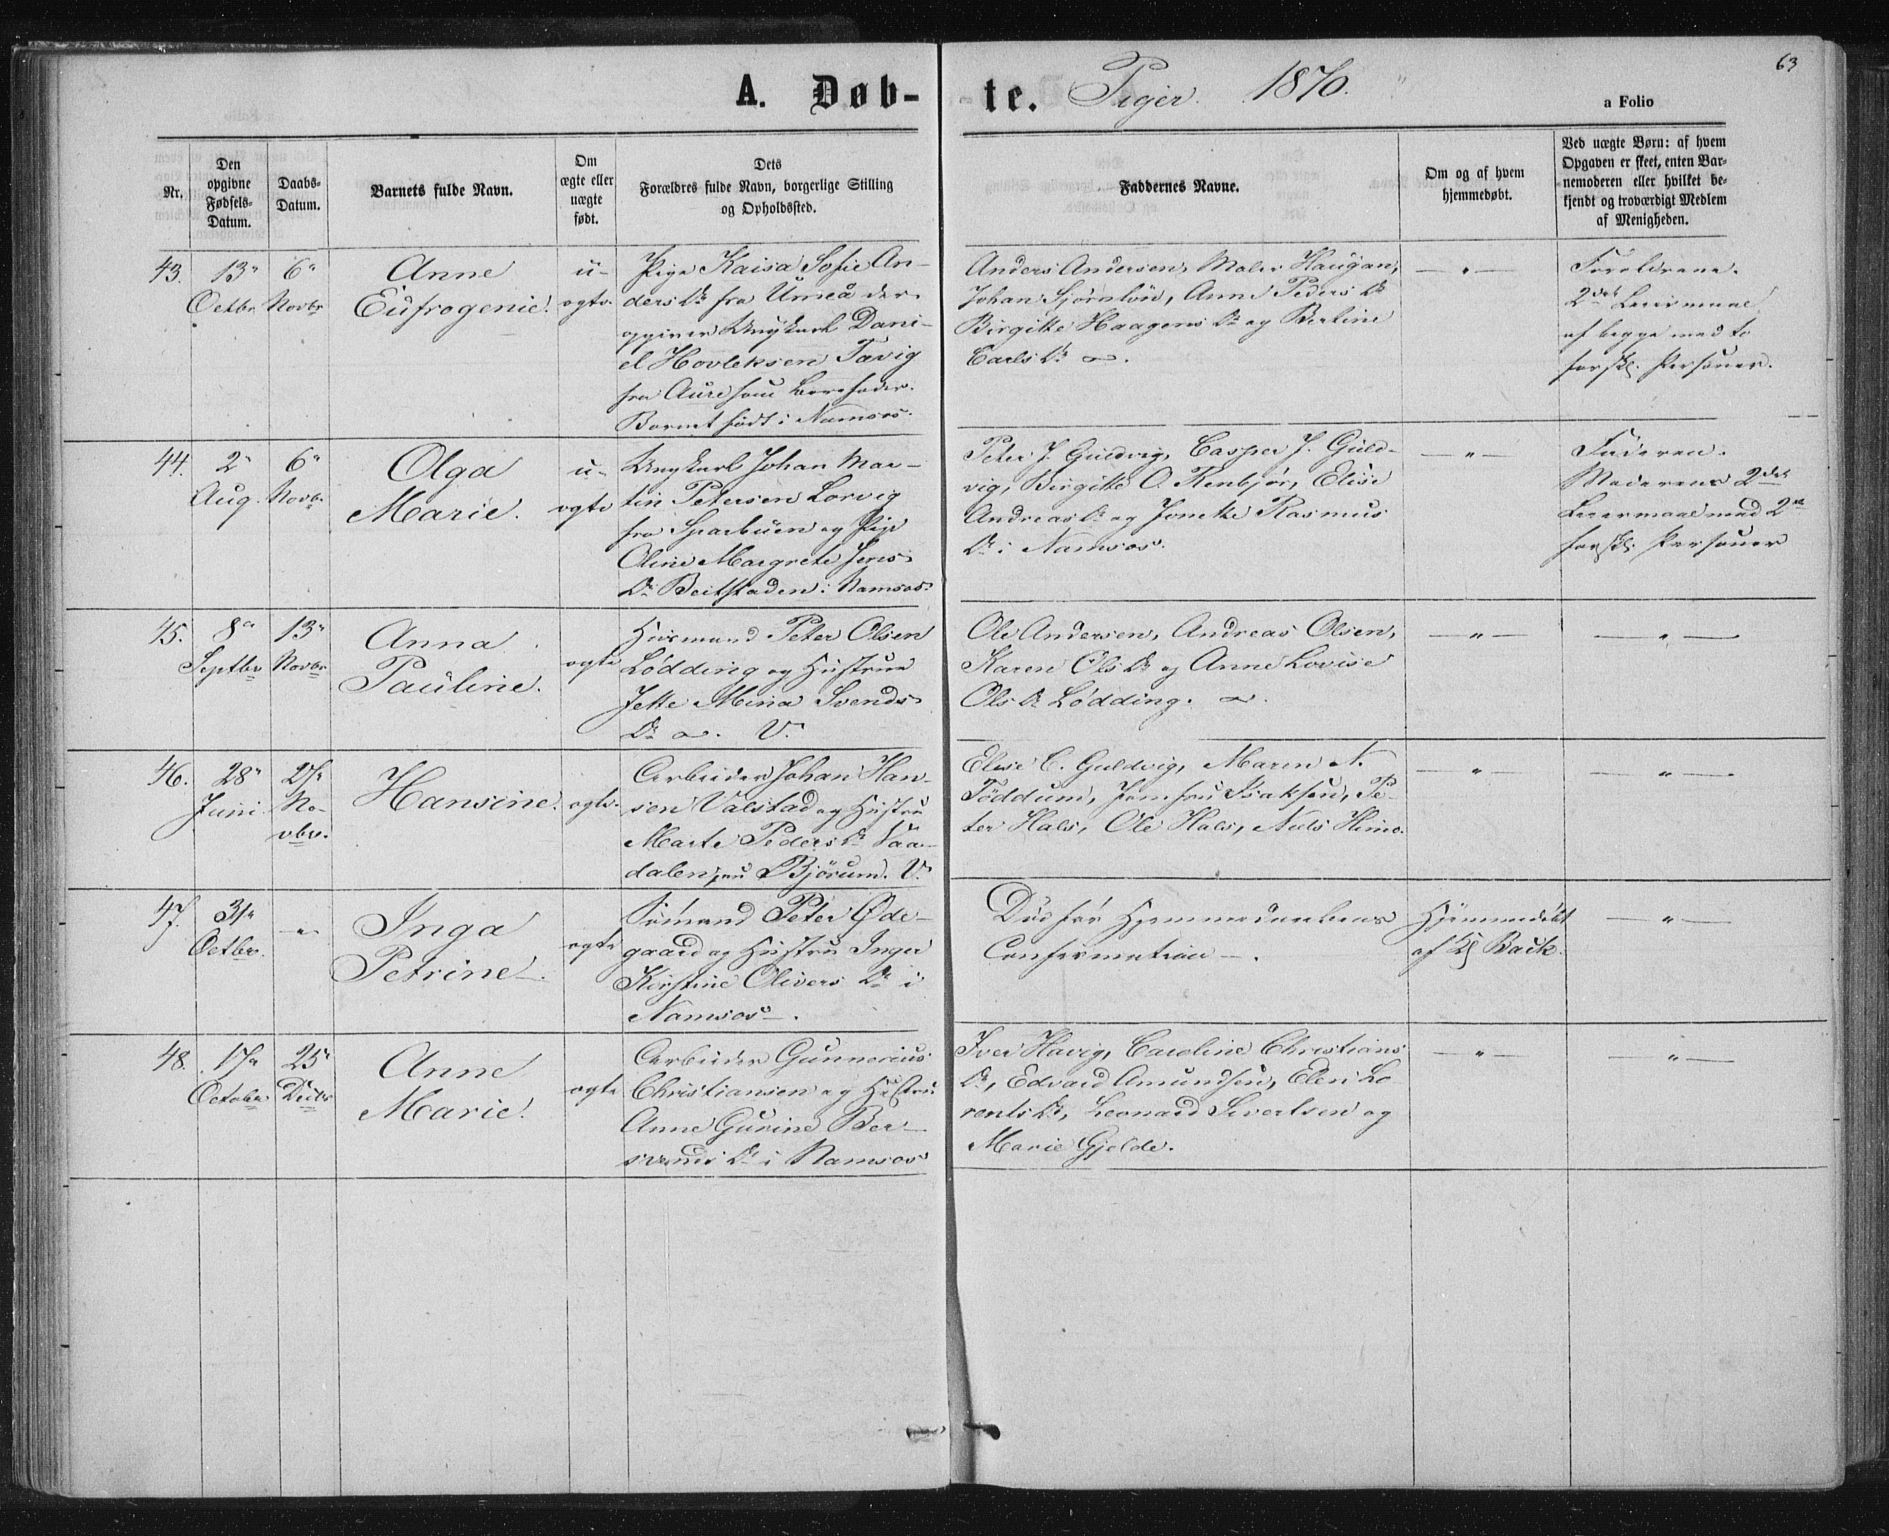 63
A. Døb-te. Piger 1870.
a Folio
Nr.
Den opgivne Fødsels-Datum.
Daabs-Datum.
Barnets fulde Navn.
Om ægte eller uægte født.
Dets Forældres fulde Navn, borgerlige Stilling og Opholdssted.
Faddernes Navne.
Om og af hvem hjemmedøbt.
Ved uægte Børn: af hvem Opgaven er skeet, enten Barnemoderen eller hvilket bekjendt og troværdigt Medlem af Menigheden.
43.
13"
Octbr
6"
Novbr
Anne
Eufrogenie.
u-
ægte
Pige Kaisa Sofie An-
ders D. fra Umeå der
opgiver Ungkarl Dani-
el Hovleksen Tavig
fra Aure som Barnefader.
Barnet født i Namsos.
Anders Andersen, Maler Haugan,
Johan Sjörnlön, Anne Peders D.
Birgitte Haagens D. og Bertine
Carls D.
— " —
Forældrene.
2det Leiermaal
af begge med to
forskj. Personer.
44.
2"
Aug.
6"
Novbr
Olga
Marie.
u-
ægte
Ungkarl Johan Mar-
tin Petersen Lorvig
fra Sparbuen og Pige
Oline Margrete Jens
D. Beitstaden i Namsos.
Peter J. Guldvig, Casper J. Guld-
vig, Birgitte O. Renbjör, Elise
Andreas D. og Jonette Rasmus
D. i Namsos.
— " —
Faderen.
Moderens 2det
Leiermaal med 2de
forskj. Personer
45.
8"
Septbr
13"
Novbr
Anna
Pauline.
ægte
Huusmand Peter Olsen
Lødding og Hustrue
Jette Mina Svends
D. V.
Ole Andersen, Andreas Olsen,
Karen Ols D. og Anne Lovise
Ols D. Lødding.
— " —
— " —
46.
28"
Juni
27"
No-
vbr.
Hansine.
ægte
Arbeider Johan Han-
sen Valstad og Hustru
Marte Peders D. Vaa-
dalen, Bjørum. V.
Elise C. Guldvig, Maren N.
Föddum, Jomfru Isaksen, Pe-
ter Hals, Ole Hals, Nils Himo.
— " —
— " —
47.
31"
Octbr.
"
Inga
Petrine
ægte
Sömand Peter Øde-
gaard og Hustru Inger
Kirstine Olivers D. i
Namsos
Död för Hjemmedaabens
Confirmation
Hjemmedøbt
af Kl Back
— " —
48.
17"
October
25"
Decbr
Anne
Marie.
ægte
Arbeider Gunnerius
Christiansen og Hustru
Anne Gurine Ber-
svends D. i Namsos
Iver Havig, Caroline Christians
D., Edvard Amundsen, Elen Lo-
rents D., Leonard Sivertsen og
Marie Gjelde.
— " —
— " —